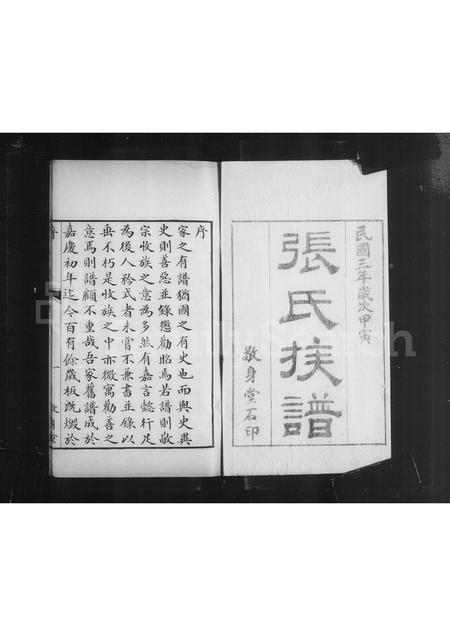 民國三年歲次甲寅
張氏族譜
敬身堂石印
序
家之有譜猶國之有史也而與史異
史則善惡並錄懲勸昭焉若譜則敬
宗收族之意為多然有嘉言懿行足
為後人矜式者未嘗不兼書並錄以
垂不朽是收族之中亦微寓勸善之
意焉則譜顧不重哉吾家舊譜成於
嘉慶初年迄今百有餘歲板既燬於